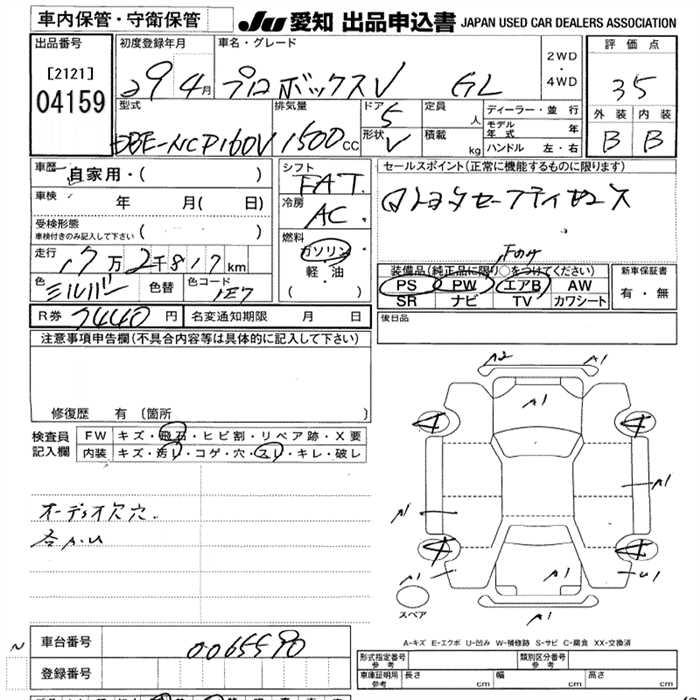 車内保管・守衛保管
JU 愛知 出品申込書 JAPAN USED CAR DEALERS ASSOCIATION
出品番号
[2121]
04159
初度登録年月
29 4月
車名・グレード
プロボックスV GL
2WD・4WD
評価点
3.5
外装 内装
B B
型式
DBE-NCP160V
排気量
1500cc
ドア 5
形状 V
定員 人
積載 kg
ディーラー・並行
モデル年式 年
ハンドル 左・右
車歴 自家用・( )
車検 年 月( 日)
受検形態
車検付きのみ記入して下さい ( )
走行 17万2千817km
色 シルバー 色替 色コード 1E7
シフト FAT
冷房 AC
燃料
ガソリン
軽・油
( )
セールスポイント(正常に機能するものに限ります)
トヨタセーフティセンス
装備品(純正品に限り○をつけてください)
PS PW エアB AW
SR ナビ TV カワシート
新車保証書
有・無
後日品
R券 7440円 名変通知期限 月 日
注意事項申告欄(不具合内容等は具体的に記入して下さい)
修復歴 有 〔箇所 〕
検査員記入欄
FW キズ・飛石・ヒビ割・リペア跡・X要
内装 キズ・汚レ・コゲ・穴・スレ・キレ・破レ
オーディオ欠穴
各A.U
A2 A1
A1
A1
A1 U1
A1
スペア
A-キズ E-エクボ U-凹み W-補修跡 S-サビ C-腐食 XX-交換済
車台番号 0065590
登録番号
形式指定番号 参考 類別区分番号 参考
車庫証明用 参考 長さ cm 幅 cm 高さ cm